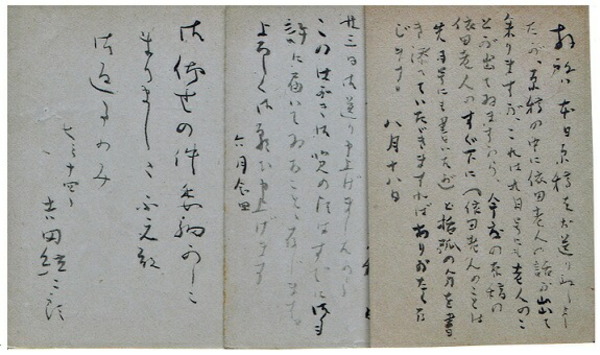 本日原稿をお送りしまし
たが、原稿の中に依田老人の話が出て
参りますが、これは九月号にも老人のこ
とが出て居ますから、今度の原稿の
依田老人のすぐ下に(依田老人のことは
先月号にも書いたが)と括弧の分を書
き添へていただきますればありがたく存
じます。 八月十八日
廿三日お送り申上げました
この はすでに御手
許に届いてゐることと存じます。
よろしくお願ひ申上げます
六月
御仰せの件承知
ました
御返事のみ
七月十四日
吉田絃二郎